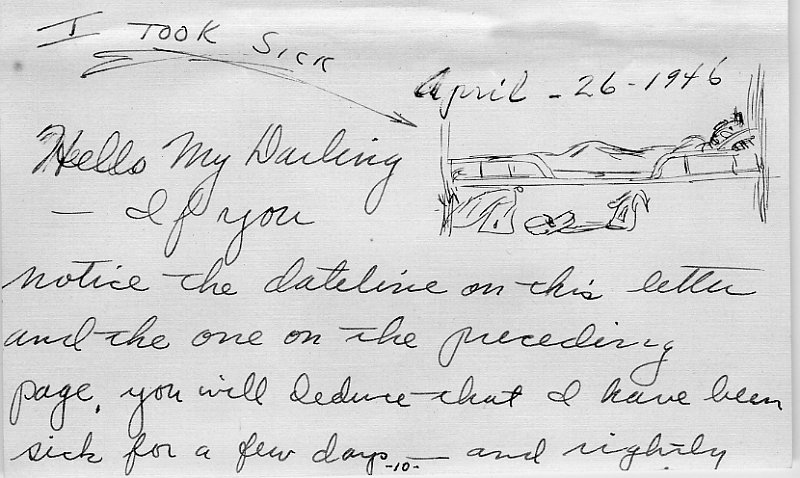 I TOOK SICK
April - 26 - 1946
Hello My Darling
— If you
notice the dateline on this letter
and the one on the preceding
page, you will deduce that I have been
sick for a few days — and rightly
-10-